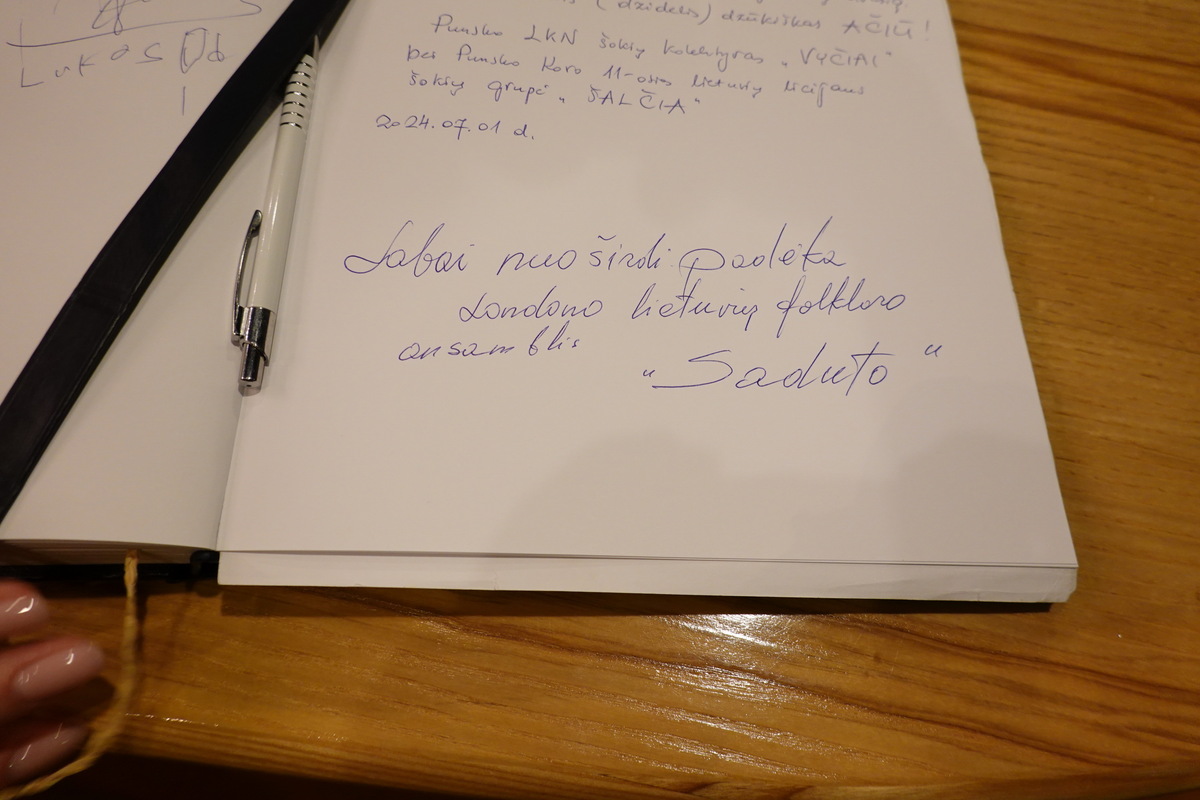 Lukas
(dzidelis) dzūkiškas AČIŪ!
Punsko LKN šokių kolektyvas „VYČIAI"
bei Punsko Kovo 11-osios lietuvių licėjaus
šokių grupė „ŠALČIA"
2024.07.01 d.
Labai nuoširdi padėka
Londono lietuvių folkloro
ansamblis
„Saduto"